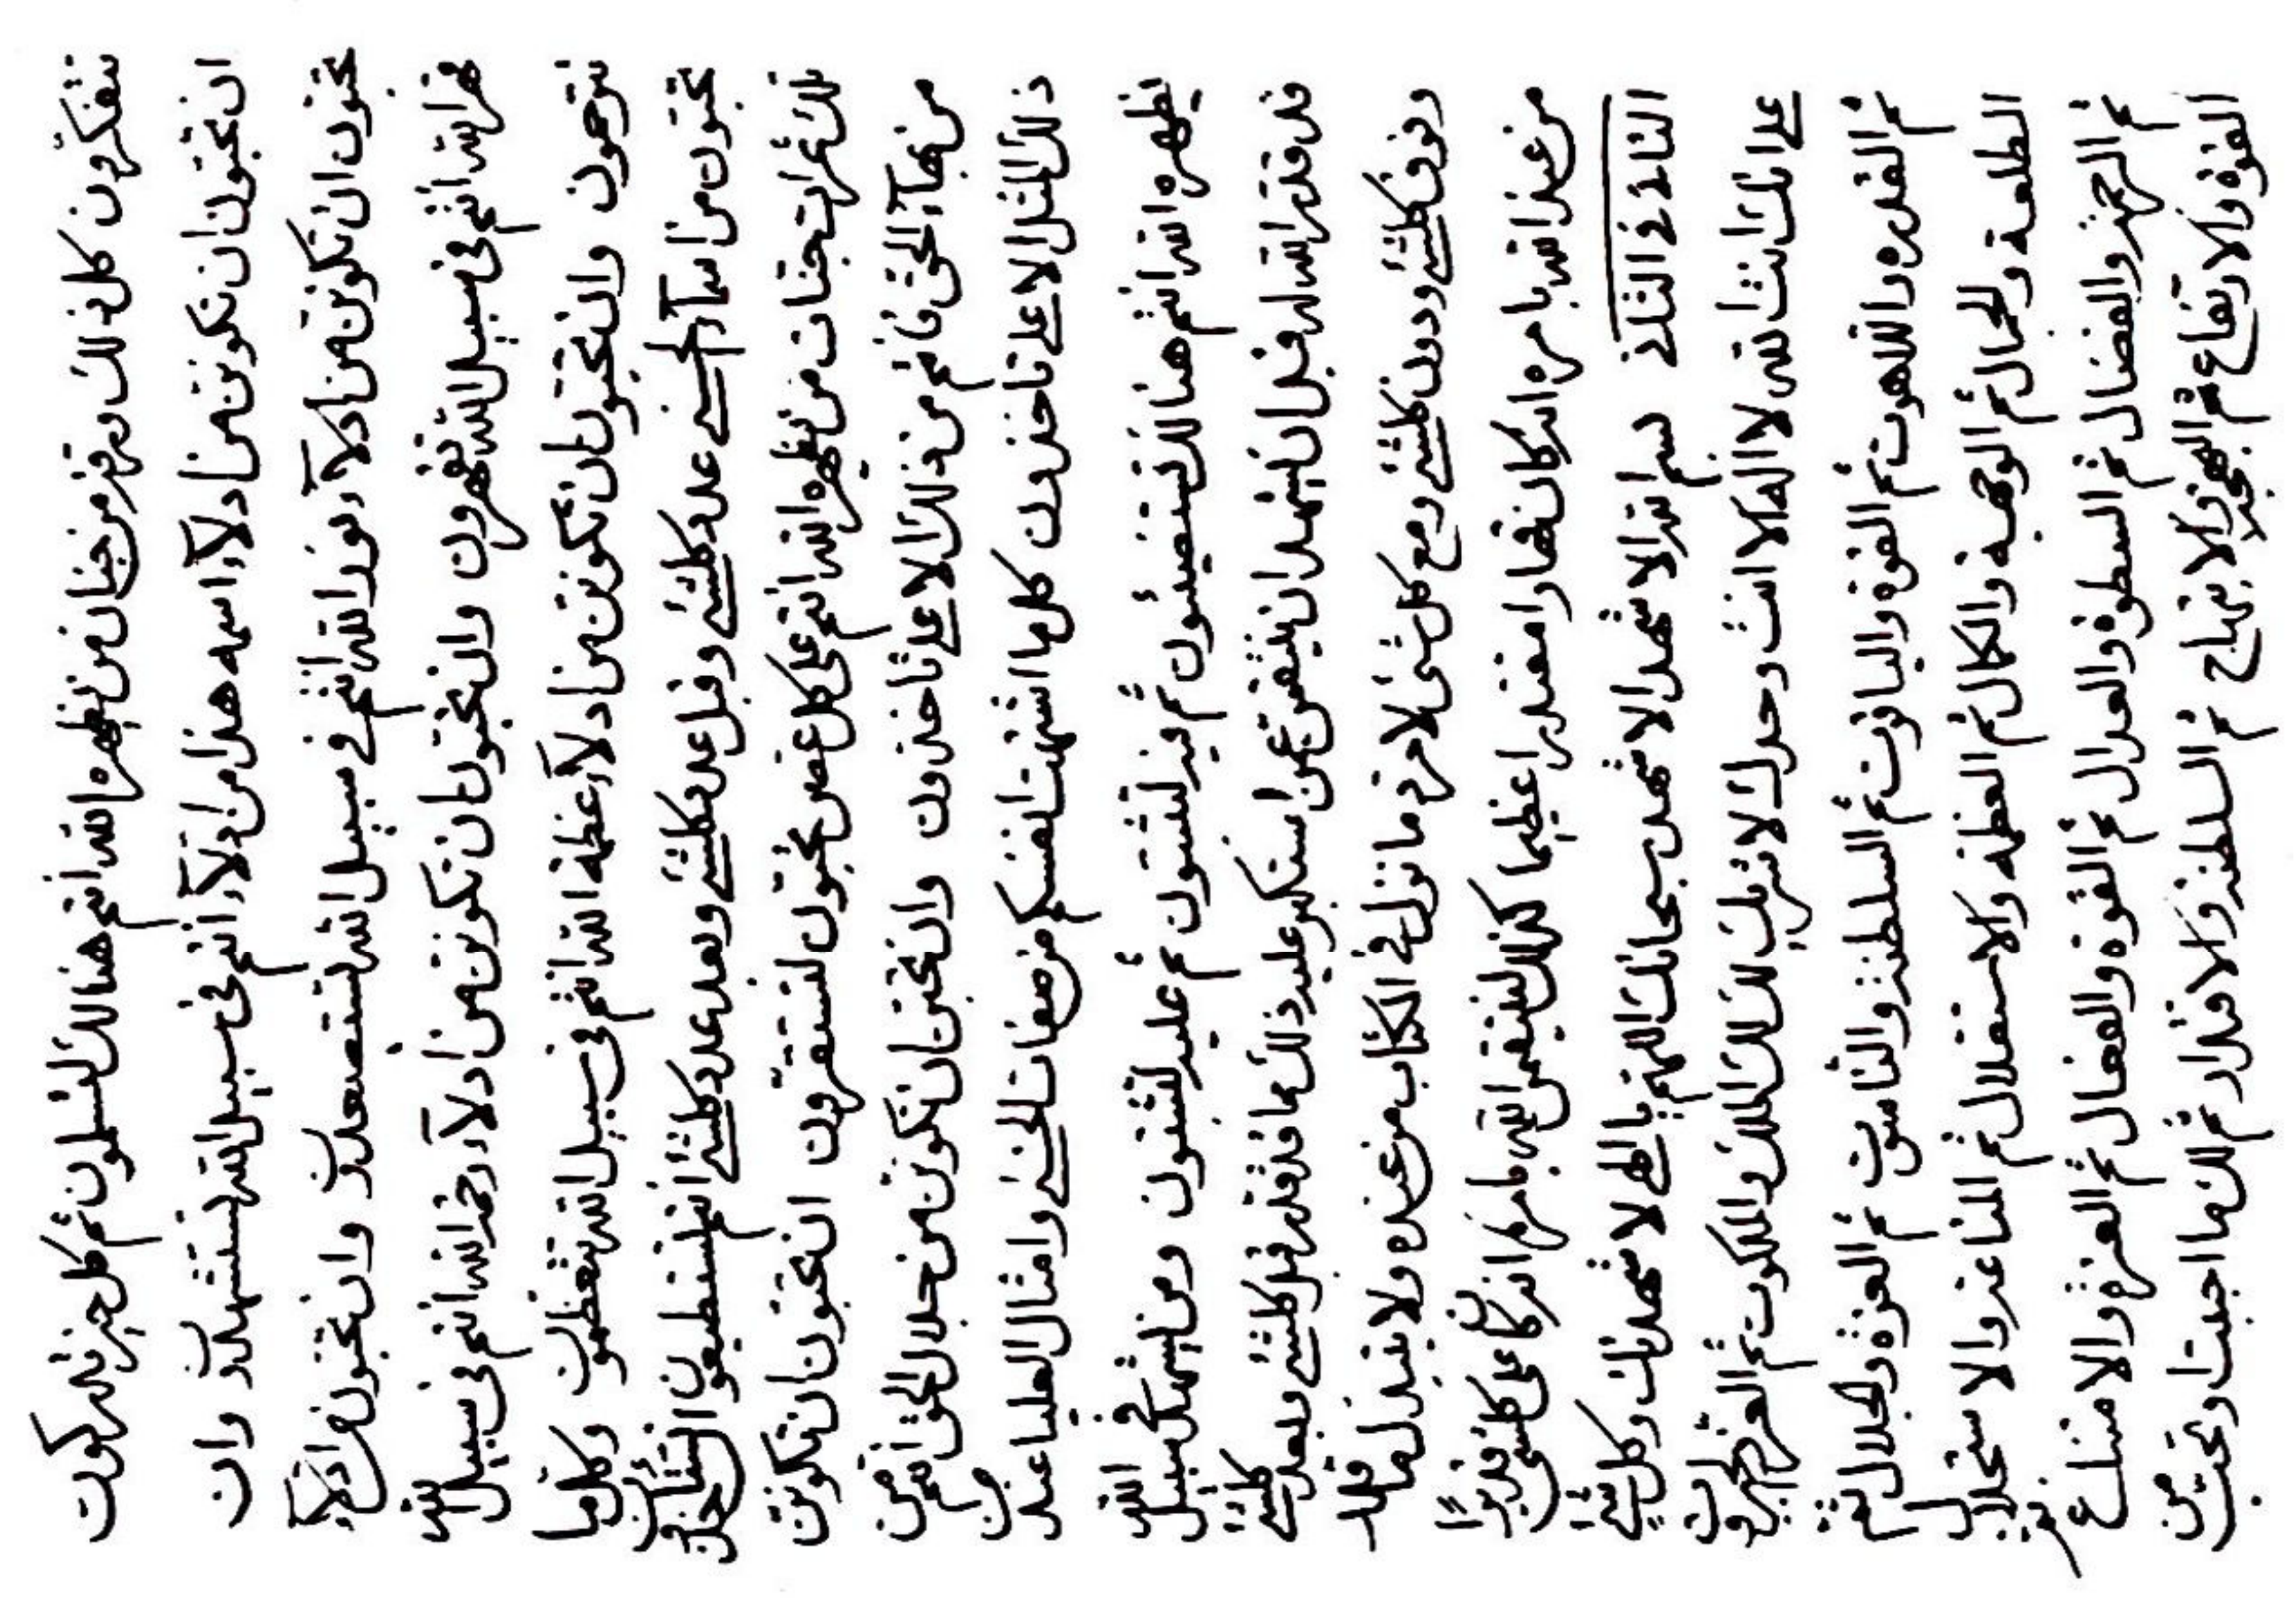 تتفكرون كل ذلك ورقة من جنان من يظهره الله انتم هنالك لتسلمون ثم كل خير تدركون
ان تحبون ان تكونن من ادلآء اسمه هذا من ادلآء انتم في سبيل الله لتستشهدون وان
تحبون ان تكونن من ادلآء نور الله انتم في سبيل الله لتستصعدون وان تحبون من ادلآء
قهر الله انتم في سبيل الله تقهرون وان تحبون ان تكونن من ادلآء رحمة الله انتم في سبيل الله
ترحمون وان تحبون ان تكونن من ادلآء عظمة الله انتم في سبيل الله تتعظمون وكل ما
تحبون من اسمآء الحسنى عدد كلشئ وقبل عدد كلشئ وبعد عدد كلشئ انتم لتستطيعون
تلك ثمرات جنات من يظهره الله انتم على كل غصن تحبون لتستقرون ان تحبون ان تكونن
من بهآء الحق فانتم من ذلك الاعلى تاخذون وان تحبن ان تكونن من جلال الحق انتم من
ذلك المثل الاعلى تاخذون كل ما اشتهت انفسكم من صفات الحسنى وامثال العليا عند من
يظهره الله انتم هنالك تستضيئون ثم فيه لتثبتون ثم عليه لتثبتون ومن يشهد في سبيل الله
قد قدر الله له قبل ان يشهد ان ينتقم عمن استكبر عليه ذلك ما قد قدر قبل كلشئ وبعد كلشئ
وفوق كلشئ ودون كلشئ ومع كل شئ لامر ما نزل في الكتاب من عنده ولا تبديل لما قدر
من عند الله بامره انه كان قهارا مقتدرا عظيما كذلك لينتقمن الله بامره انه كان على كلشئ قديرا
الثاني في الثاني بسم الله الاشهد الاشهد سبحانك اللهم يا الهي لاشهدنك وكل شئ
على انك انت الله لا اله الا انت وحدك لا شريك لك لك الملك والملكوت ثم العز والجبروت
ثم القدرة واللاهوت ثم القوة والياقوت ثم السلطنة والناسوت ثم العزة والجلال ثم
الطلعة والجمال ثم الوجهة والكمال ثم العظمة والاستقلال ثم المناعة والاستجلال
ثم الرحمة والفضال ثم السطوة والعدال ثم القوة والفعال ثم العزة والامتناع ثم
القوة والارتفاع ثم البهجة والابتهاج ثم السلطنة والاقتدار ثم لك ما احببت او تحبن من